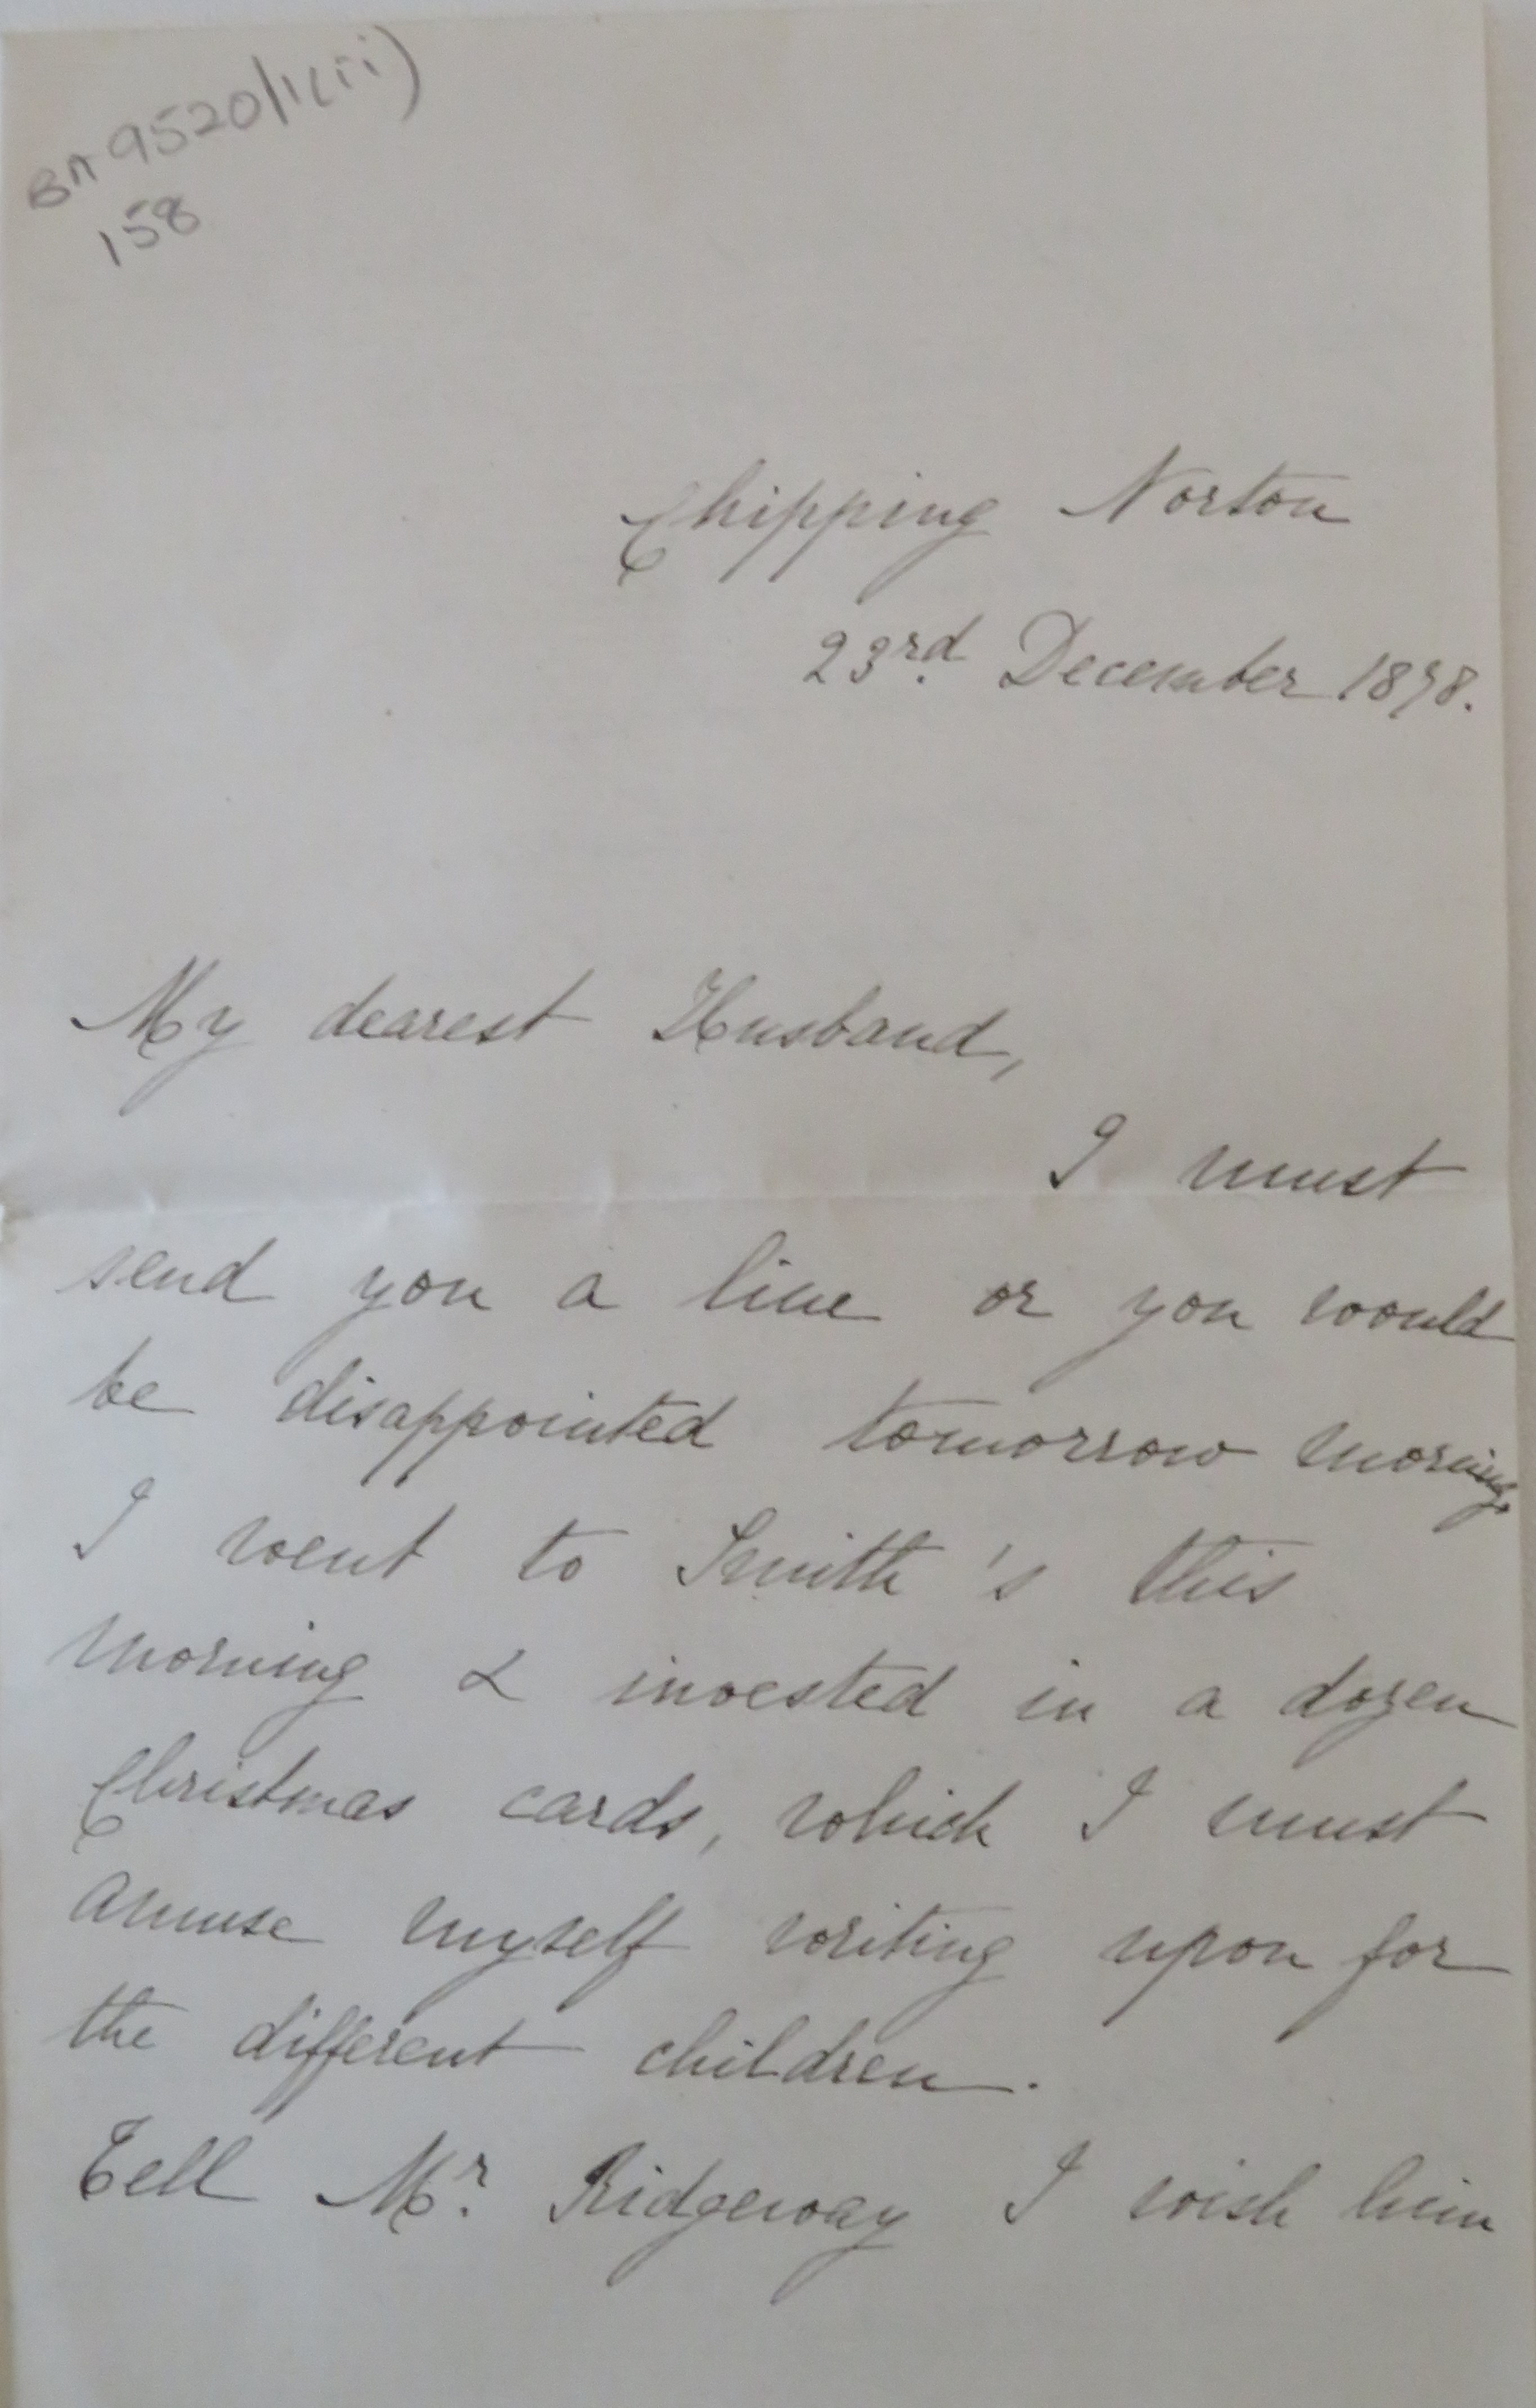 BA 9520/1(ii)
158
Chipping Norton
23rd December 1898.
My dearest Husband,
I must
send you a line or you would
be disappointed tomorrow morning.
I went to Smith's this
morning & invested in a dozen
Christmas cards, which I must
amuse myself writing upon for
the different children.
Tell Mr. Ridgeway I wish him